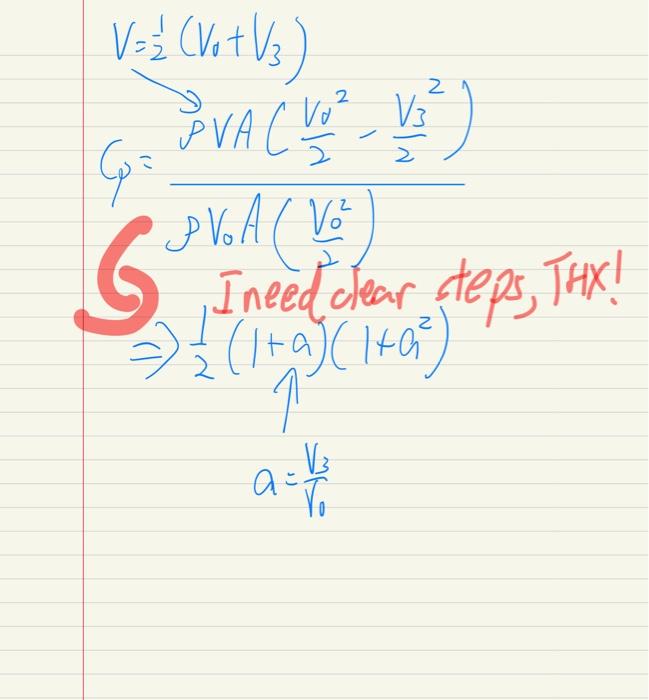 V=½(V₀+V₃)
Cp=
ρVA(V₀²/2 - V₃²/2)
ρV₀A(V₀²/2)
I need clear steps, THX!
⇒ ½(1+a)(1+a²)
a=V₃/V₀